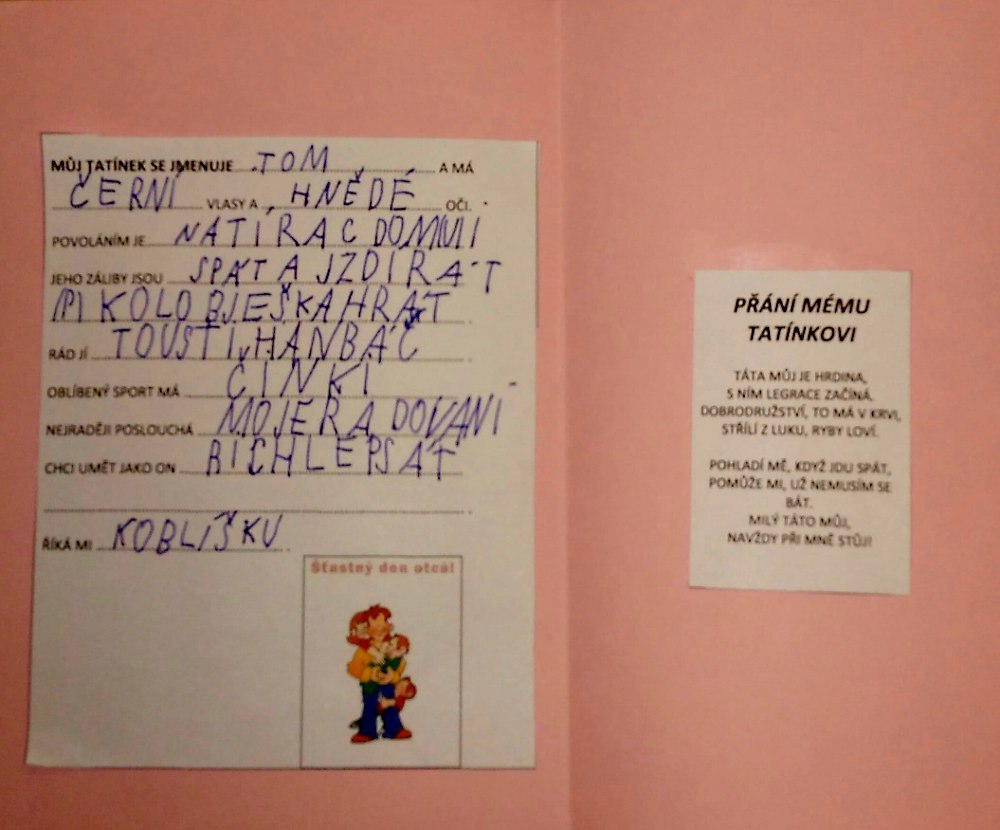 MŮJ TATÍNEK SE JMENUJE TOM A MÁ
ČERNÍ VLASY A HNĚDÉ OČI.
POVOLÁNÍM JE NATÍRAC DOMUI
JEHO ZÁLIBY JSOU SPÁT A JZDIRAT
KOLOBJEŠKA HRÁT
RÁD JÍ TOUSTI, HANBÁČ
OBLÍBENÝ SPORT MÁ ČINKI
NEJRADĚJI POSLOUCHÁ MOJE RADOVANI
CHCI UMĚT JAKO ON RICHLE PSÁT
ŘÍKÁ MI KOBLIŠKU
Šťastný den otců!
PŘÁNÍ MÉMU
TATÍNKOVI
TÁTA MŮJ JE HRDINA,
S NÍM LEGRACE ZAČÍNÁ,
DOBRODRUŽSTVÍ, TO MÁ V KRVI,
STŘÍLÍ Z LUKU, RYBY LOVÍ.
POHLADÍ MĚ, KDYŽ JDU SPÁT,
POMŮŽE MI, UŽ NEMUSÍM SE
BÁT.
MILÝ TÁTO MŮJ,
NAVŽDY PŘI MNĚ STŮJ!